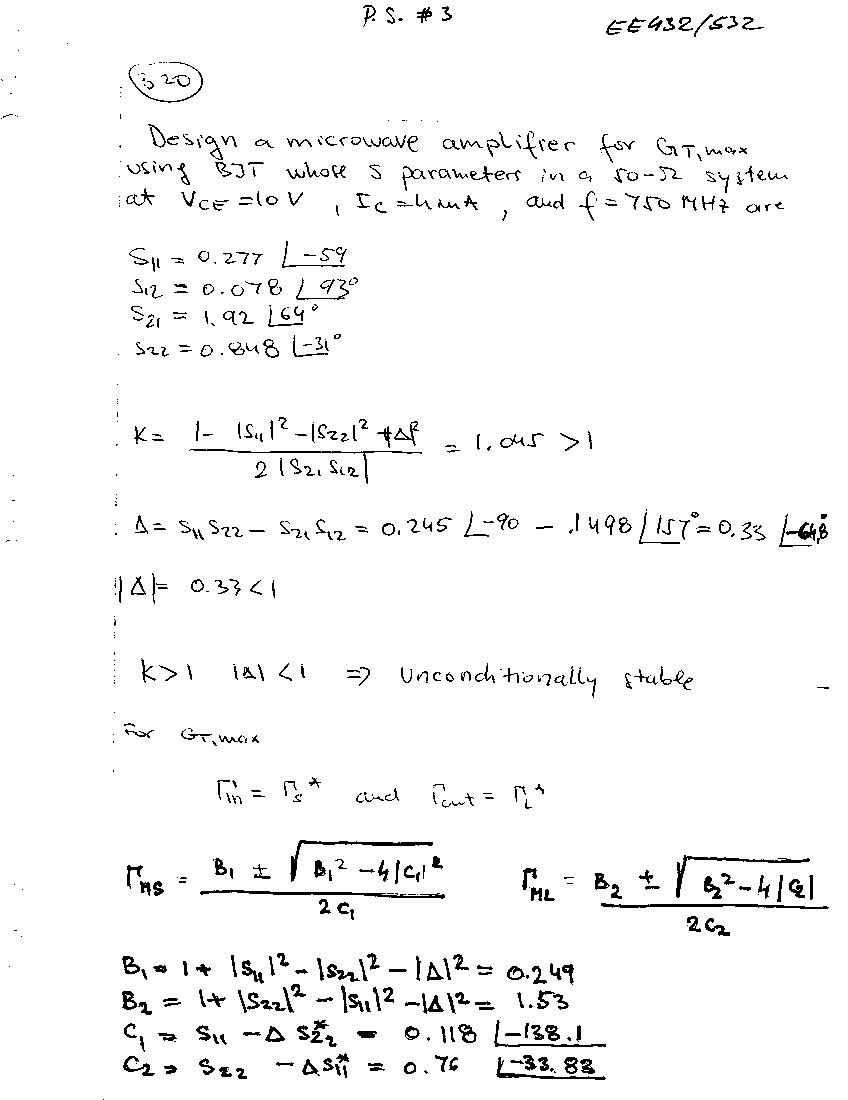 P. S. # 3
EE432/532
3.20
Design a microwave amplifier for GT,max
using BJT whose S parameters in a 50-Ω system
at VCE = 10 V , IC = 4 mA , and f = 750 MHz are
S11 = 0.277 ∠-59
S12 = 0.078 ∠93°
S21 = 1.92 ∠64°
S22 = 0.848 ∠-31°
K = (1 - |S11|² - |S22|² + |Δ|²) / (2 |S21 S12|) = 1.045 > 1
Δ = S11 S22 - S21 S12 = 0.245 ∠-90 - .1498 ∠157° = 0.33 ∠-64.8°
|Δ| = 0.33 < 1
K > 1 |Δ| < 1 => Unconditionally stable
For GT,max
Γin = Γs* and Γout = ΓL*
ΓMS = (B1 ± √(B1² - 4|C1|²)) / (2C1) ΓML = (B2 ± √(B2² - 4|C2|)) / (2C2)
B1 = 1 + |S11|² - |S22|² - |Δ|² = 0.249
B2 = 1 + |S22|² - |S11|² - |Δ|² = 1.53
C1 = S11 - Δ S22* = 0.118 ∠-138.1
C2 = S22 - Δ S11* = 0.76 ∠-33.83